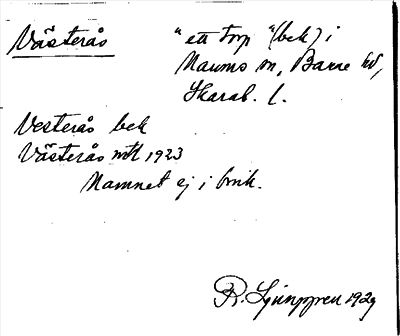 Västerås
"ett torp" (bek) i
Naums sn, Barne hd,
Skarab. l.
Vesterås bek
Västerås mtl 1923
Namnet ej i bruk.
R. Ljunggren 1929